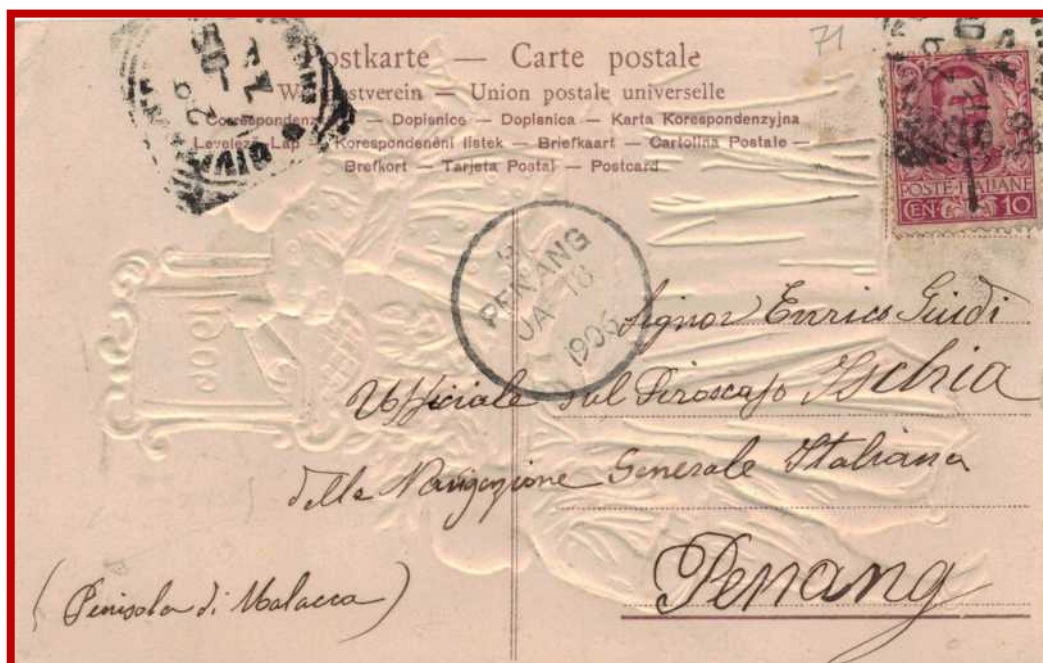 71
Postkarte — Carte postale
Weltpostverein — Union postale universelle
Correspondenz — Dopisnice — Dopisnica — Karta Korespondenzyjna
Levelező-Lap — Korespondenční lístek — Briefkaart — Cartolina Postale —
Brefkort — Tarjeta Postal — Postcard
POSTE ITALIANE
CENT. 10
PENANG
JA 18
1906
Signor Enrico Guidi
Ufficiale sul Piroscafo Ischia
della Navigazione Generale Italiana
Penang
(Penisola di Malacca)